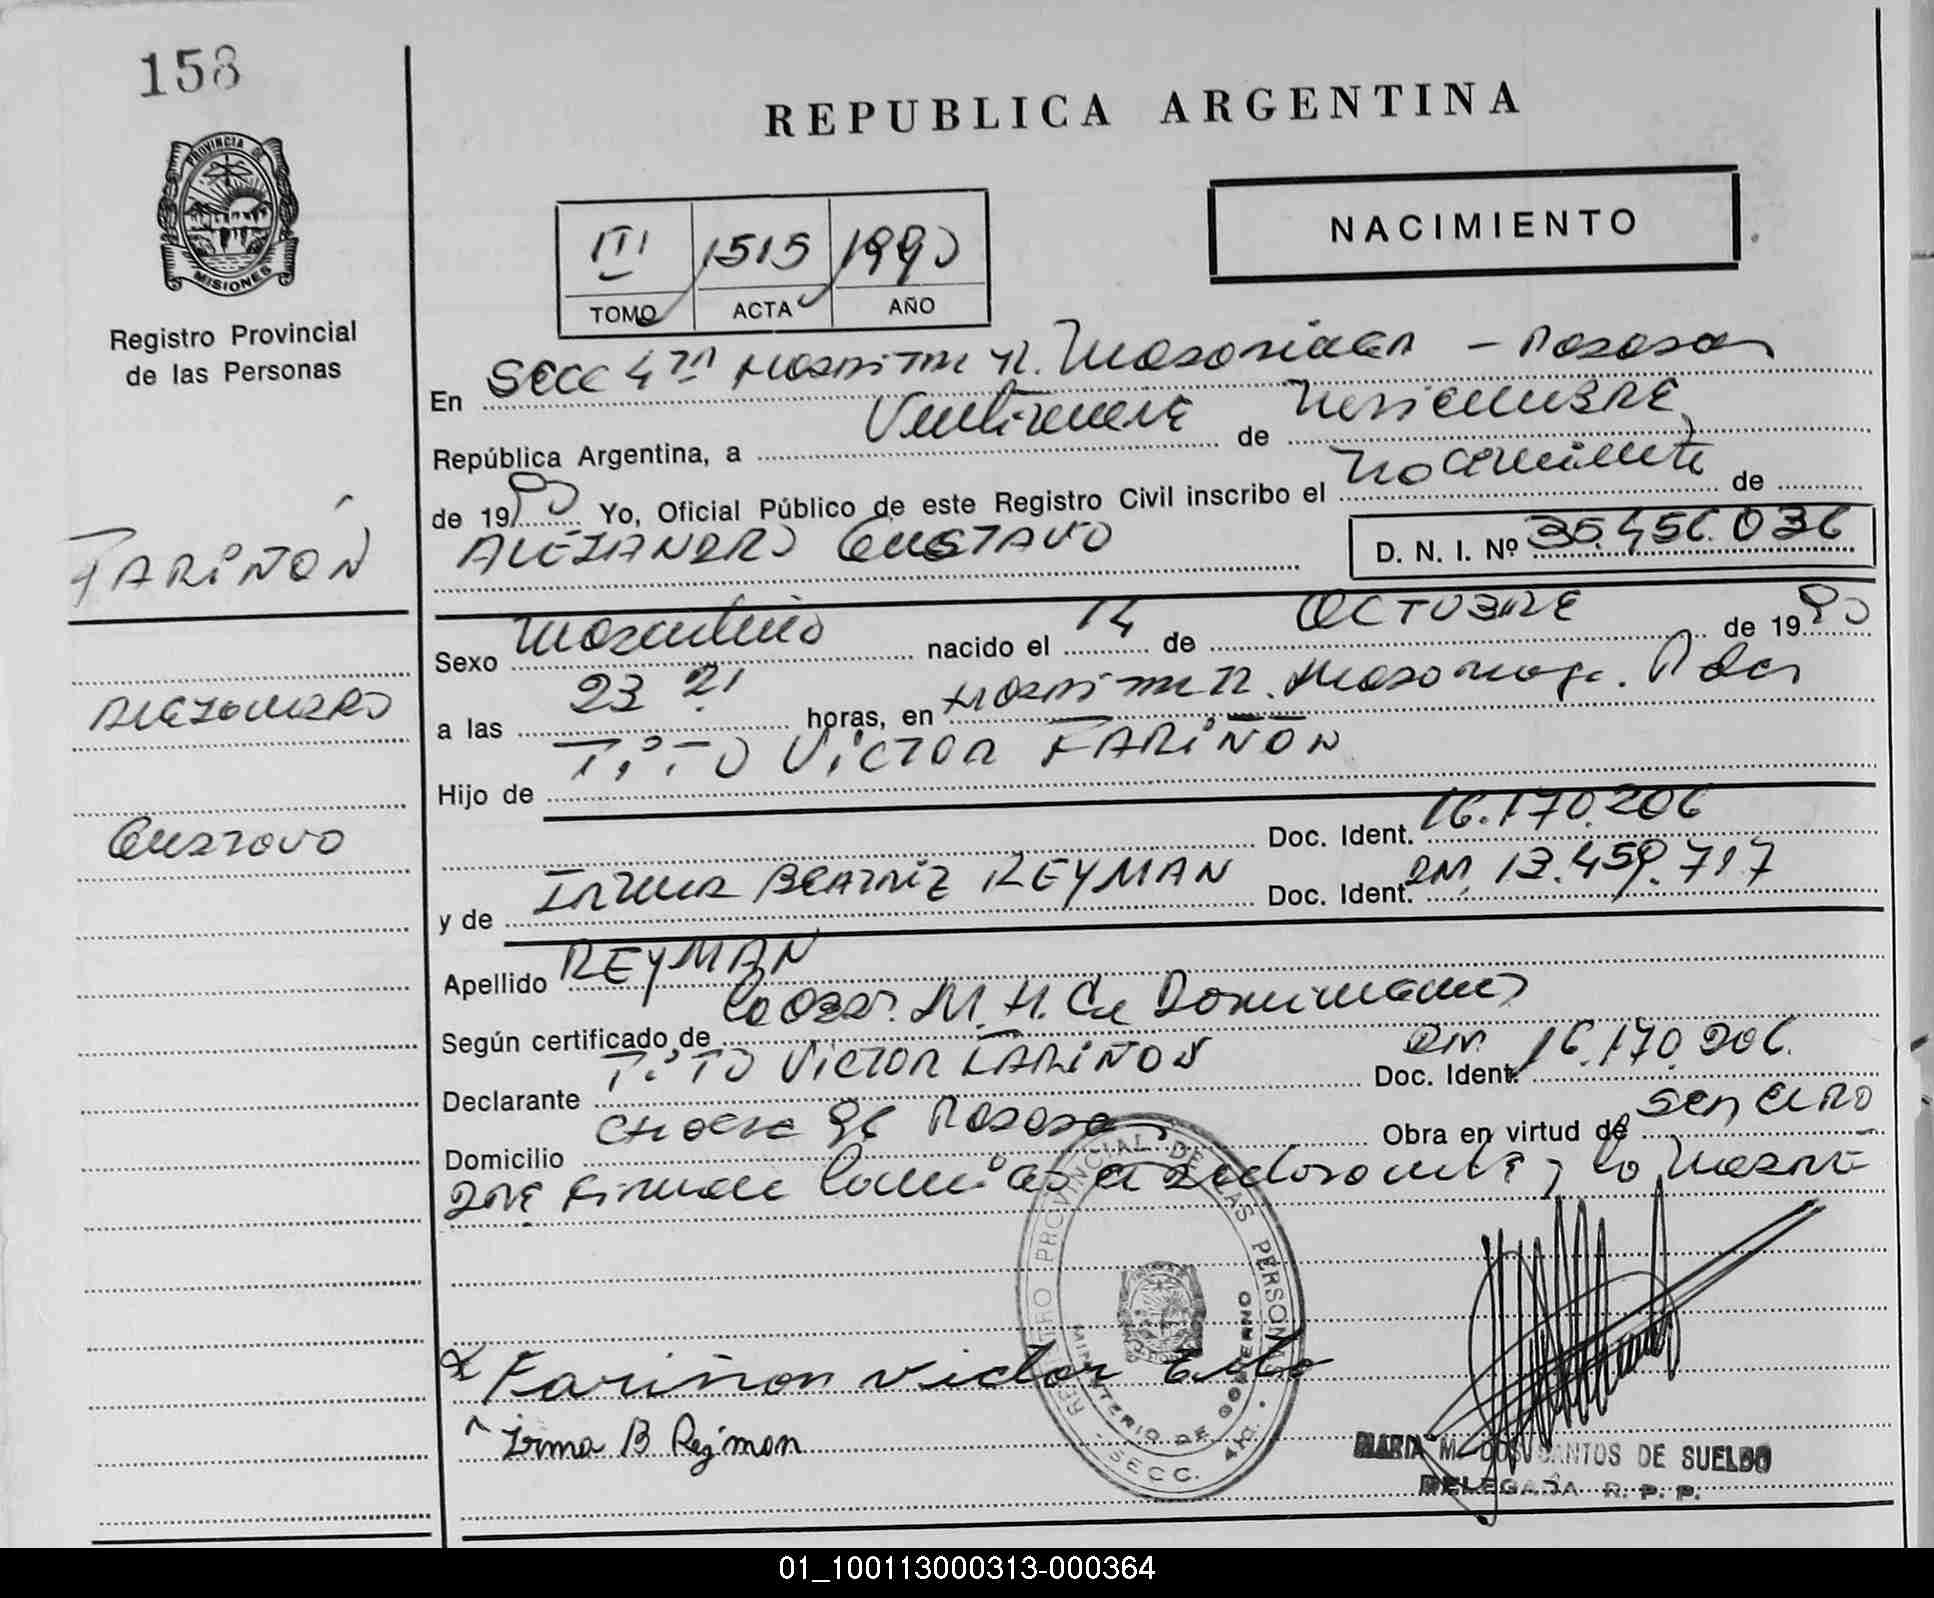 158
REPUBLICA ARGENTINA
PROVINCIA DE
MISIONES
Registro Provincial
de las Personas
NACIMIENTO
III 1515 1990
TOMO ACTA AÑO
En SECC 4ta
República Argentina, a Veintinueve de Noviembre
de 1990 Yo, Oficial Público de este Registro Civil inscribo el nacimiento de
ALEJANDRO GUSTAVO D. N. I. Nº 35.456.036
FARIÑON
Sexo Masculino nacido el 14 de OCTUBRE de 1990
ALEJANDRO
a las 23 21 horas, en
Hijo de TITO VICTOR FARIÑON
GUSTAVO
Doc. Ident. 16.170.206
y de IRMA BEATRIZ REYMAN Doc. Ident. DNI. 13.459.717
Apellido REYMAN
Según certificado de M. H. de
Declarante TITO VICTOR FARIÑON Doc. Ident. DNI 16.170.206.
Domicilio Posadas Obra en virtud de
que firman y la madre
REGISTRO PROVINCIAL DE LAS PERSONAS
MINISTERIO DE GOBIERNO
SECC. 4ta.
Fariñon Victor Tito
Irma B Reyman
MARIA M. DOS SANTOS DE SUELDO
DELEGADA R. P. P.
01_100113000313-000364